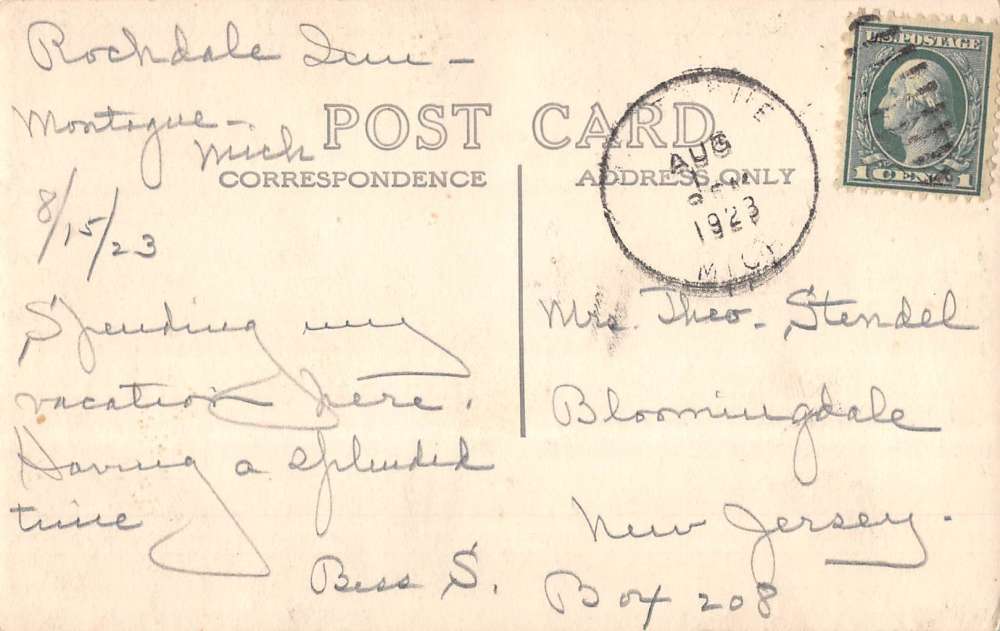 Rockdale Inn -
Montague -
Mich
8/15/23
POST CARD
CORRESPONDENCE
ADDRESS ONLY
U.S. POSTAGE
1 CENT 1
AUG
1923
MICH
Spending my
vacation here.
Having a splendid
time
Bess S.
Mrs. Theo. Stendel
Bloomingdale
New Jersey.
Box 208